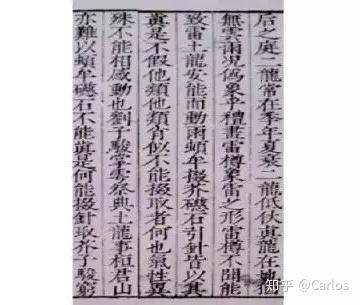 后之庭二龍常在季年夏衰二龍低伏眞龍在地猶
無雲雨況僞象乎禮畫雷樽象雷之形雷樽不聞能
致雷土龍安能而動雨頓牟掇芥磁石引針皆以其
眞是不假他類他類肖似不能掇取者何也氣性異
殊不能相感動也劉子駿掌雩祭典土龍事桓君山
亦難以頓牟磁石不能眞是何能掇針取芥子駿窮
知乎 @Carlos